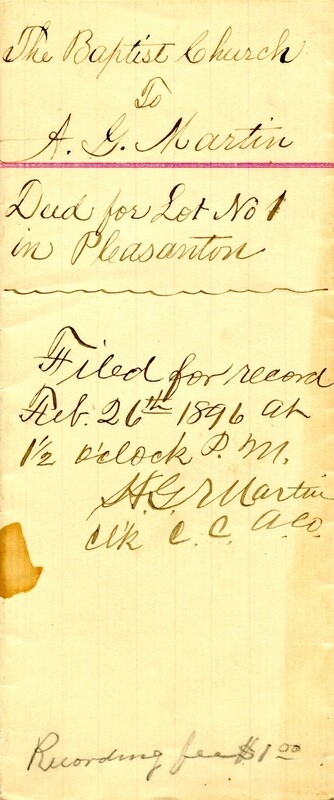 The Baptist Church
To
A. G. Martin
Deed for Lot No 1
in Pleasanton
Filed for record
Feb. 26th 1896 at
1½ o'clock P. M.
A. G. Martin
Cl'k C. C. A. Co.
Recording fee $1.00